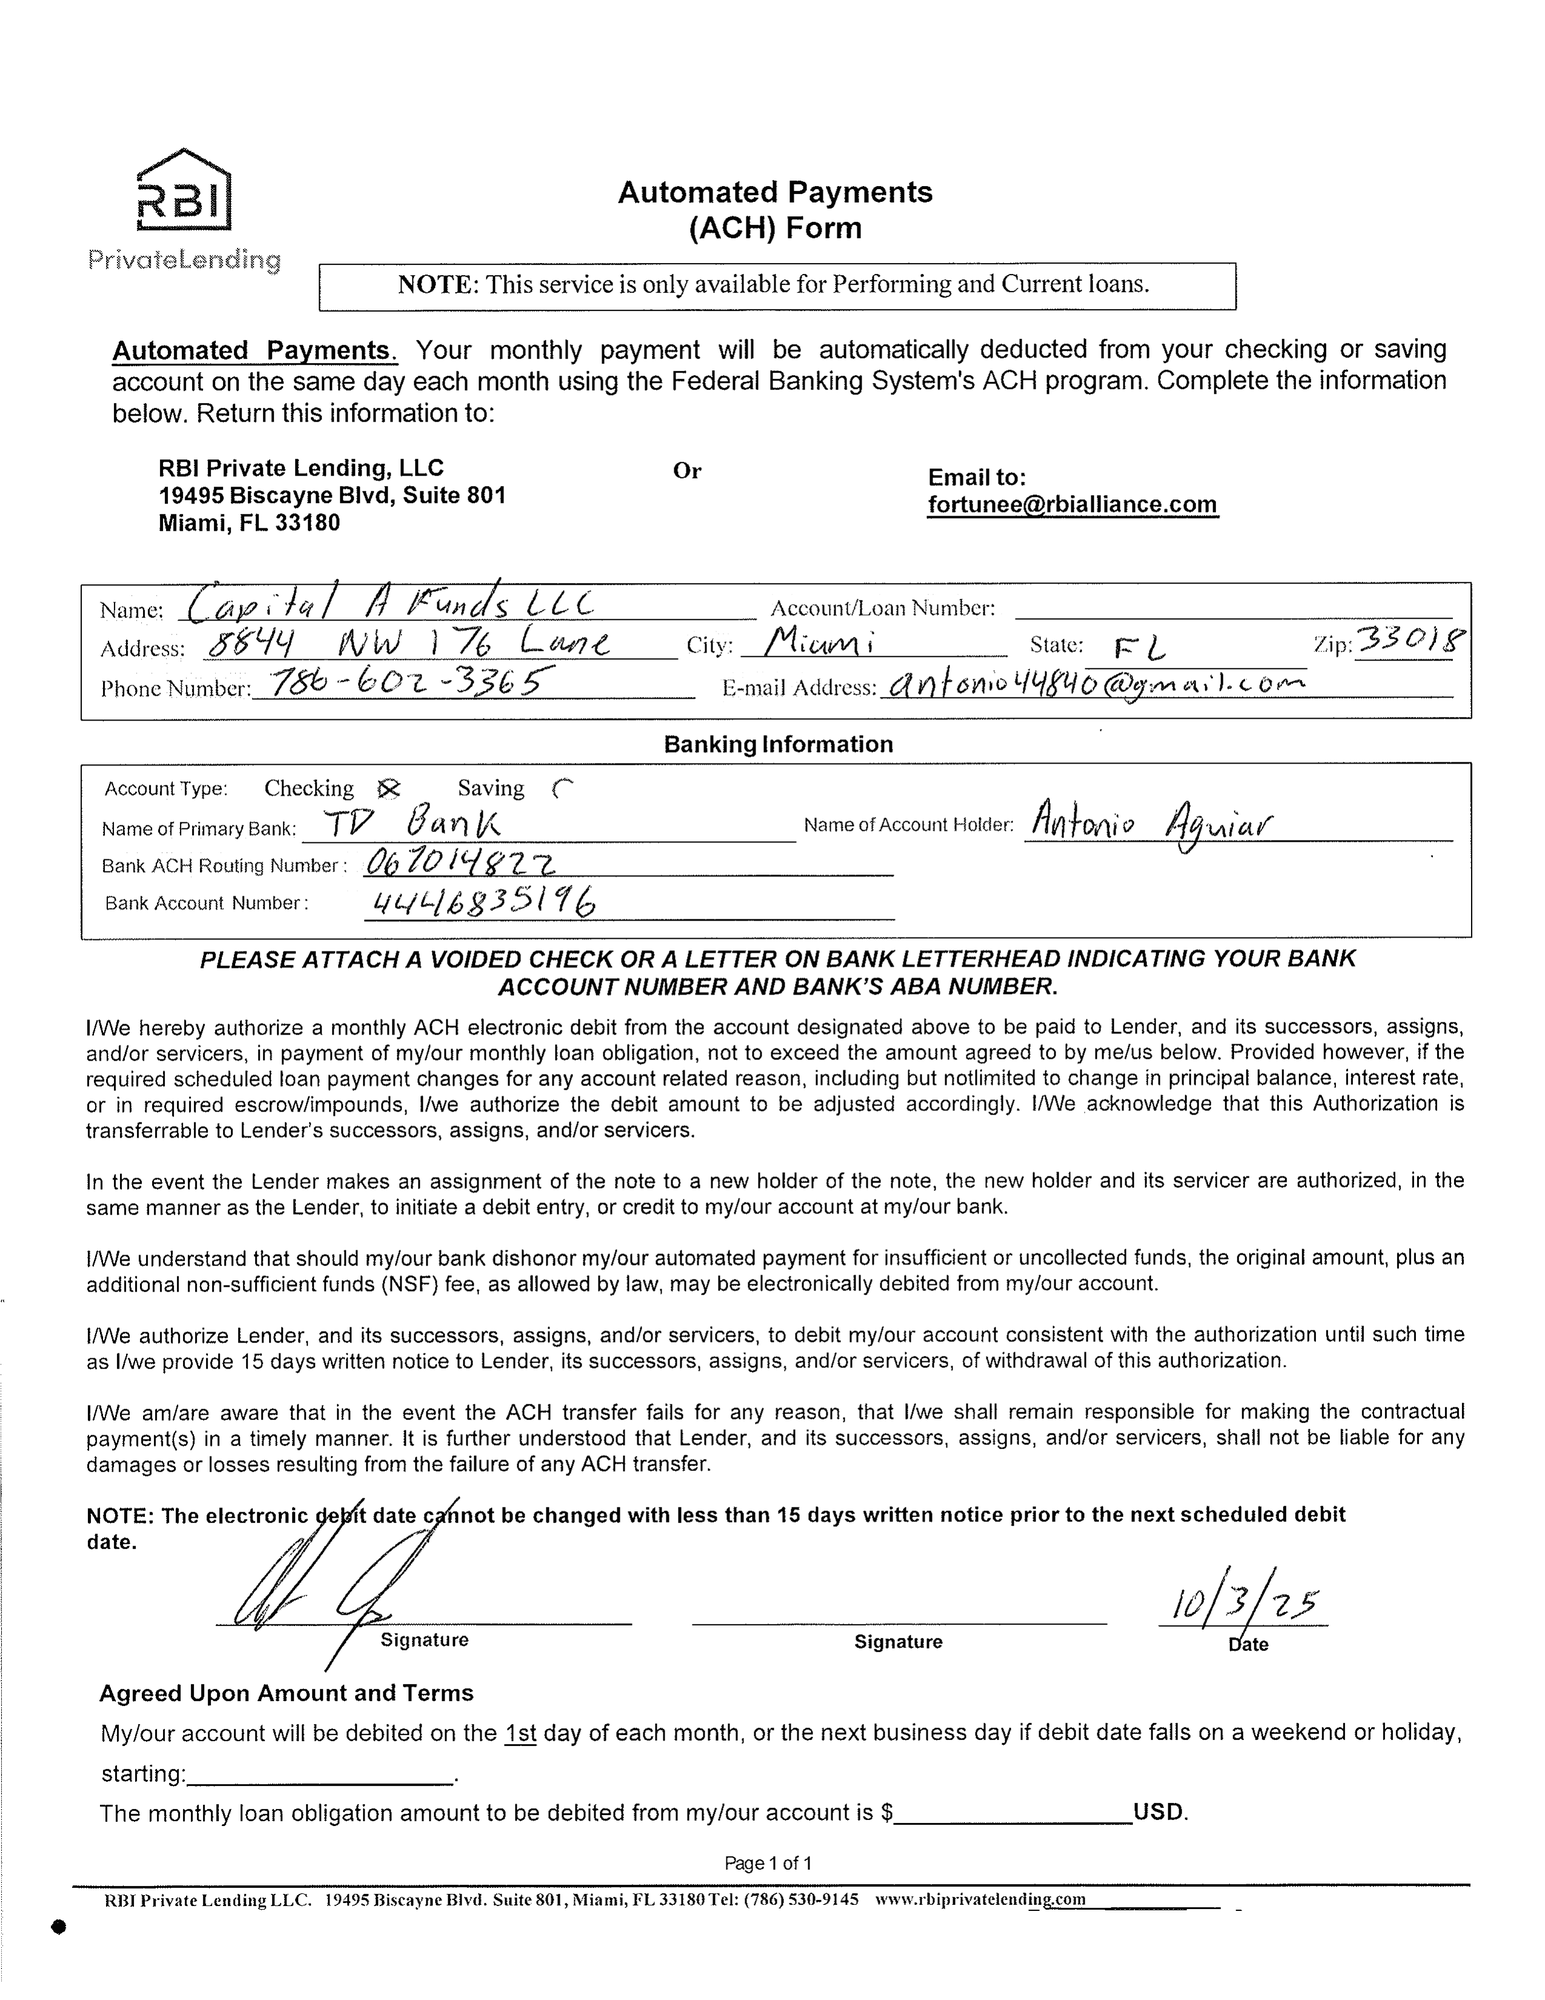 RBI
PrivateLending
Automated Payments
(ACH) Form
NOTE: This service is only available for Performing and Current loans.
Automated Payments. Your monthly payment will be automatically deducted from your checking or saving
account on the same day each month using the Federal Banking System's ACH program. Complete the information
below. Return this information to:
RBI Private Lending, LLC
19495 Biscayne Blvd, Suite 801
Miami, FL 33180
Or
Email to:
fortunee@rbialliance.com
Name: Capital A Funds LLC Account/Loan Number:
Address: 8844 NW 176 Lane City: Miami State: FL Zip: 33018
Phone Number: 786-602-3365 E-mail Address: antonio44840@gmail.com
Banking Information
Account Type: Checking Saving
Name of Primary Bank: TD Bank Name of Account Holder: Antonio Aguiar
Bank ACH Routing Number: 067014822
Bank Account Number: 4446835196
PLEASE ATTACH A VOIDED CHECK OR A LETTER ON BANK LETTERHEAD INDICATING YOUR BANK
ACCOUNT NUMBER AND BANK'S ABA NUMBER.
I/We hereby authorize a monthly ACH electronic debit from the account designated above to be paid to Lender, and its successors, assigns,
and/or servicers, in payment of my/our monthly loan obligation, not to exceed the amount agreed to by me/us below. Provided however, if the
required scheduled loan payment changes for any account related reason, including but notlimited to change in principal balance, interest rate,
or in required escrow/impounds, I/we authorize the debit amount to be adjusted accordingly. I/We acknowledge that this Authorization is
transferrable to Lender's successors, assigns, and/or servicers.
In the event the Lender makes an assignment of the note to a new holder of the note, the new holder and its servicer are authorized, in the
same manner as the Lender, to initiate a debit entry, or credit to my/our account at my/our bank.
I/We understand that should my/our bank dishonor my/our automated payment for insufficient or uncollected funds, the original amount, plus an
additional non-sufficient funds (NSF) fee, as allowed by law, may be electronically debited from my/our account.
I/We authorize Lender, and its successors, assigns, and/or servicers, to debit my/our account consistent with the authorization until such time
as I/we provide 15 days written notice to Lender, its successors, assigns, and/or servicers, of withdrawal of this authorization.
I/We am/are aware that in the event the ACH transfer fails for any reason, that I/we shall remain responsible for making the contractual
payment(s) in a timely manner. It is further understood that Lender, and its successors, assigns, and/or servicers, shall not be liable for any
damages or losses resulting from the failure of any ACH transfer.
NOTE: The electronic debit date cannot be changed with less than 15 days written notice prior to the next scheduled debit
date.
10/3/25
Signature Signature Date
Agreed Upon Amount and Terms
My/our account will be debited on the 1st day of each month, or the next business day if debit date falls on a weekend or holiday,
starting: .
The monthly loan obligation amount to be debited from my/our account is $ USD.
Page 1 of 1
RBI Private Lending LLC. 19495 Biscayne Blvd. Suite 801, Miami, FL 33180 Tel: (786) 530-9145 www.rbiprivatelending.com